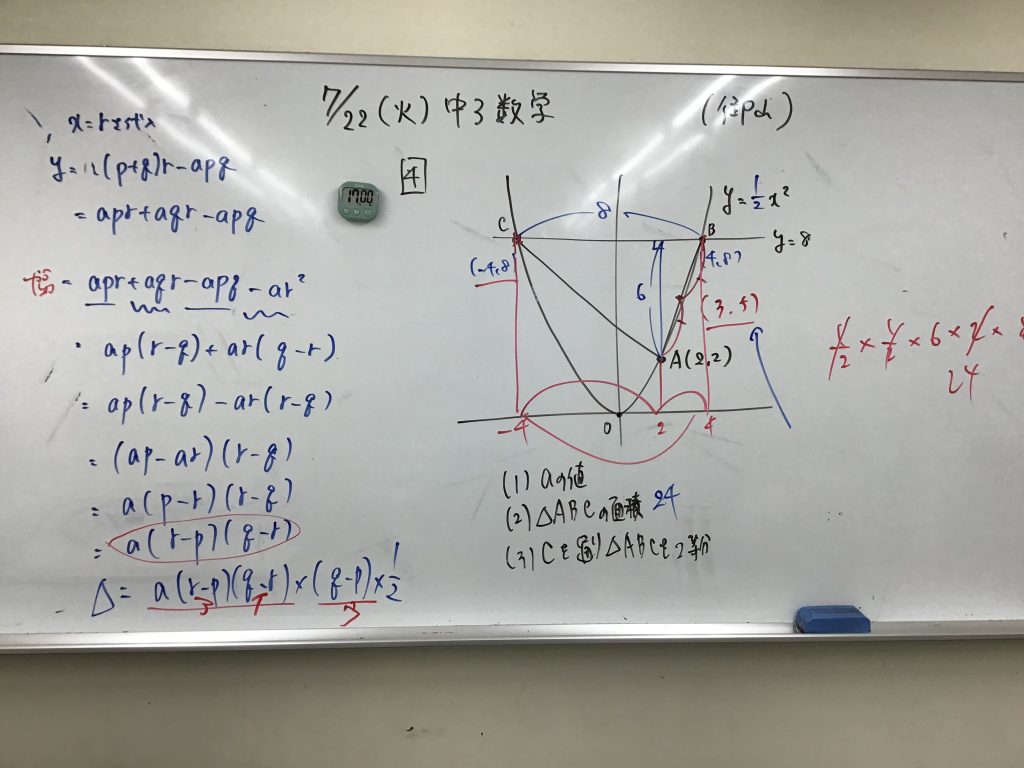 7/22 (火) 中3数学
y = (p+q)r - apq
= apr + aqr - apq
= apr + aqr - apq - ar²
= ap(r-q) + ar(q-r)
= ap(r-q) - ar(r-q)
= (ap-ar)(r-q)
= a(p-r)(r-q)
= a(r-p)(q-r)
△ = a(r-p)(q-r) × (q-p) × 1/2
3 1 5
17:00
4
y = 1/2 x²
8
C
B
y = 8
(-4,8)
(4,8)
6
(3, 5)
A(2,2)
-4 0 2 4
(1) aの値
(2) △ABCの面積 24
(3) Cを通り△ABCを2等分
× 6 ×
24